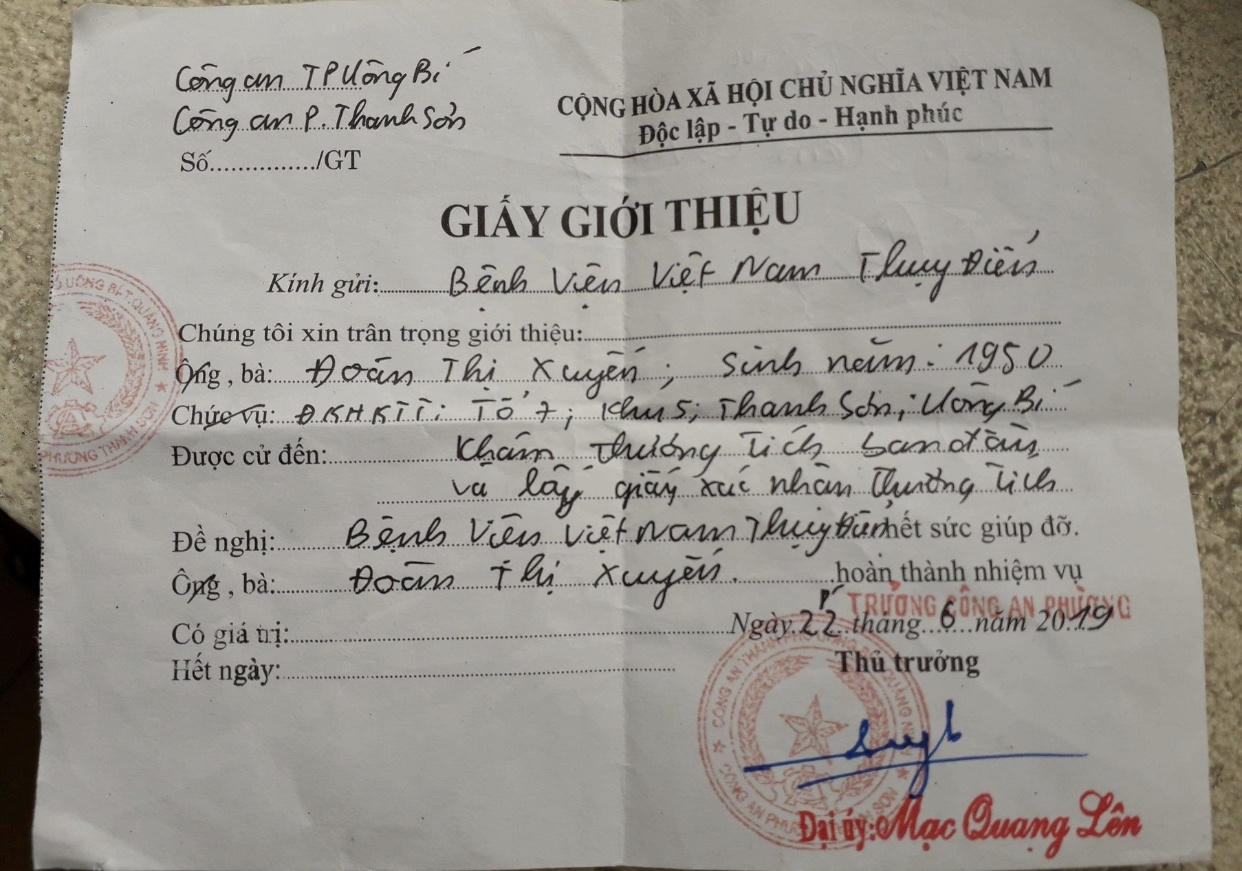 Công an TP Uông Bí
Công an P. Thanh Sơn
Số............../GT
CỘNG HÒA XÃ HỘI CHỦ NGHĨA VIỆT NAM
Độc lập - Tự do - Hạnh phúc
GIẤY GIỚI THIỆU
Kính gửi: Bệnh Viện Việt Nam Thụy Điển
Chúng tôi xin trân trọng giới thiệu:
Ông, bà: Đoàn Thị Xuyến; Sinh năm: 1950
Chức vụ: ĐKHKTT: Tổ 7; Khu 5; Thanh Sơn; Uông Bí
Được cử đến: Khám thương tích ban đầu
và lấy giấy xác nhận thương tích
Đề nghị: Bệnh Viện Việt Nam Thụy Điển hết sức giúp đỡ.
Ông, bà: Đoàn Thị Xuyến. hoàn thành nhiệm vụ
P. TRƯỞNG CÔNG AN PHƯỜNG
Có giá trị: Ngày 22 tháng 6 năm 2019
Hết ngày: Thủ trưởng
Đại úy: Mạc Quang Lên